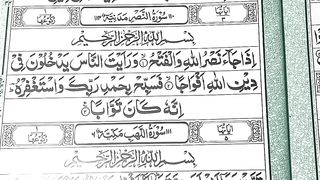 سُوۡرَةُ النَّصۡرِ مَدَنِيَّةٌ
بِسۡمِ اللهِ الرَّحۡمٰنِ الرَّحِيۡمِ
اِذَا جَآءَ نَصۡرُ اللهِ وَالۡفَتۡحُ ۙ وَرَاَيۡتَ النَّاسَ يَدۡخُلُوۡنَ فِىۡ
دِيۡنِ اللهِ اَفۡوَاجًا ۙ فَسَبِّحۡ بِحَمۡدِ رَبِّكَ وَاسۡتَغۡفِرۡهُ ؕ
اِنَّهٗ كَانَ تَوَّابًا
سُوۡرَةُ اللَّهَبِ مَكِّيَّةٌ
بِسۡمِ اللهِ الرَّحۡمٰنِ الرَّحِيۡمِ